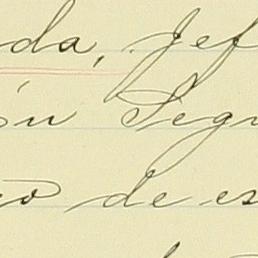 da, Jef
ón Segu
o de es